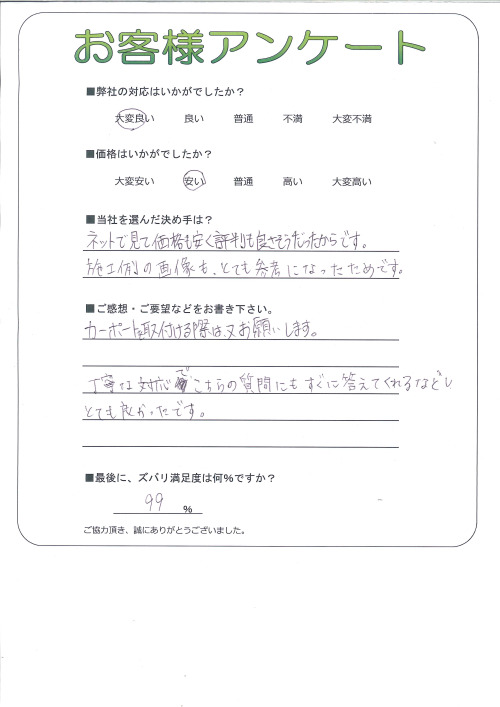 お客様アンケート
■弊社の対応はいかがでしたか？
大変良い 良い 普通 不満 大変不満
■価格はいかがでしたか？
大変安い 安い 普通 高い 大変高い
■当社を選んだ決め手は？
ネットで見て価格も安く評判も良さそうだったからです。
施工例の画像も、とても参考になったためです。
■ご感想・ご要望などをお書き下さい。
カーポート取付ける際は、又お願いします。
丁寧な対応でこちらの質問にもすぐに答えてくれるなどし
とても良かったです。
■最後に、ズバリ満足度は何％ですか？
99 ％
ご協力頂き、誠にありがとうございました。